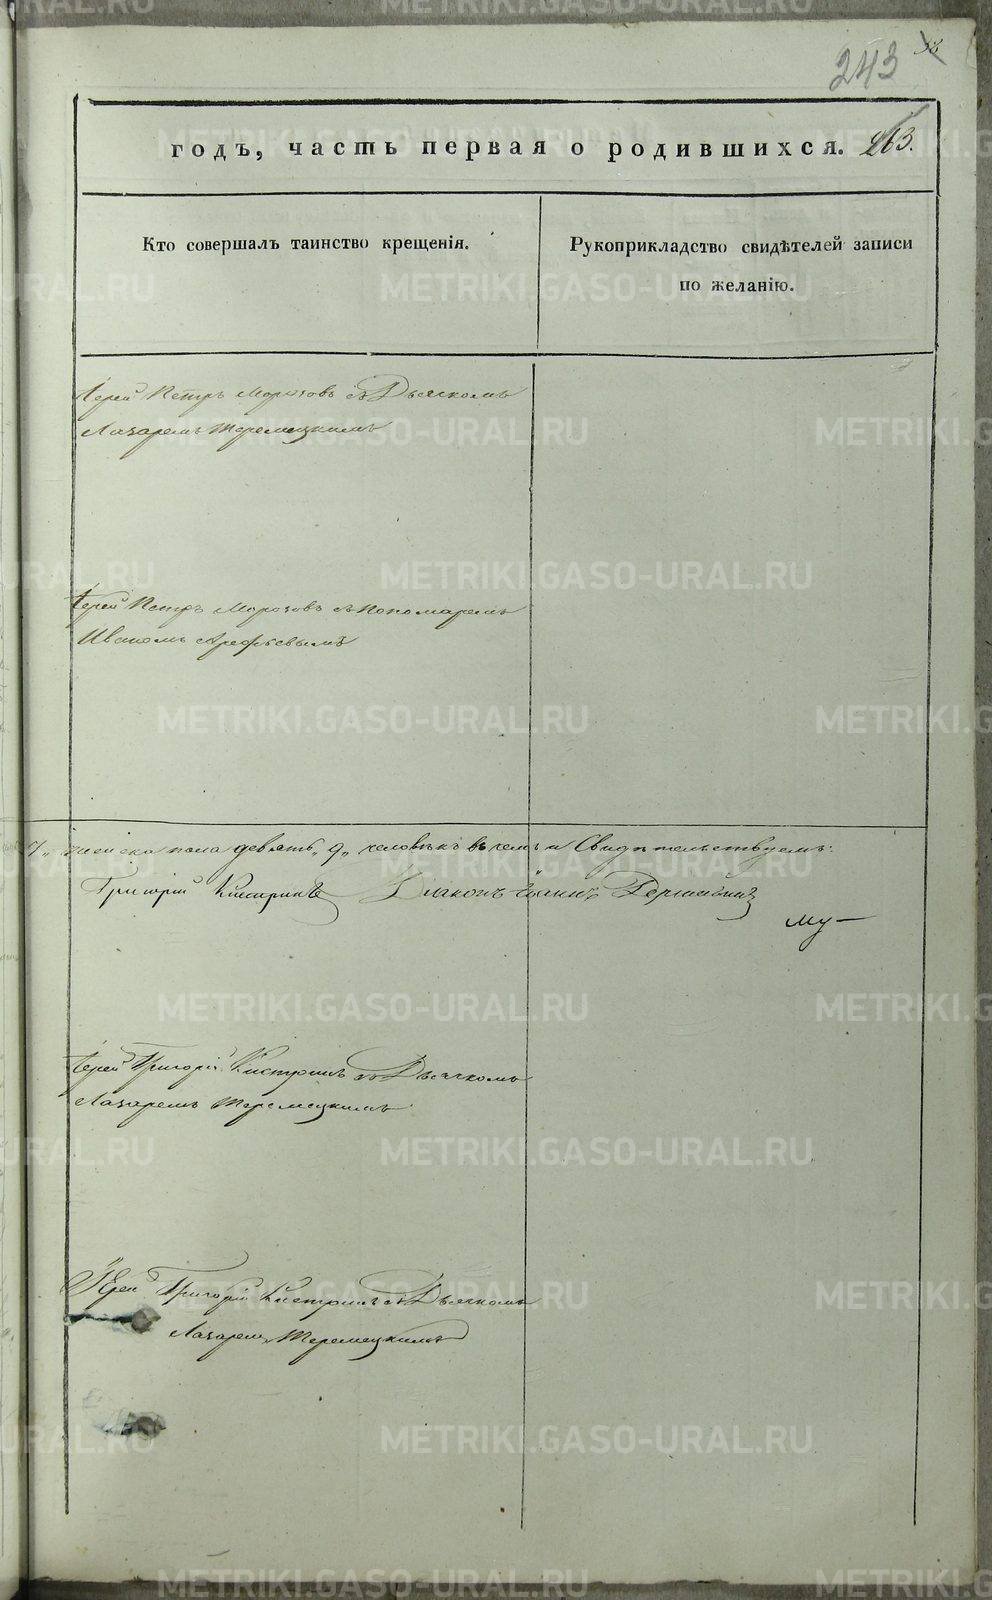 243
годъ, часть первая о родившихся. 263.
Кто совершалъ таинство крещенія.
Рукоприкладство свидѣтелей записи
по желанію.
Іерей Петръ Морозовъ съ Дьячкомъ
Лазаремъ Теремецкимъ
Іерей Петръ Морозовъ съ Пономаремъ
Иваномъ Арефьевымъ
7„ женска пола девять„ 9„ человѣкъ въ чемъ и Свидѣтельствуемъ:
Григорій Кистринъ Діаконъ Іоаннъ
му—
Іерей Григорій Кистринъ съ Дьячкомъ
Лазаремъ Теремецкимъ
Іерей Григорій Кистринъ съ Дьячкомъ
Лазаремъ Теремецкимъ
METRIKI.GASO-URAL.RU